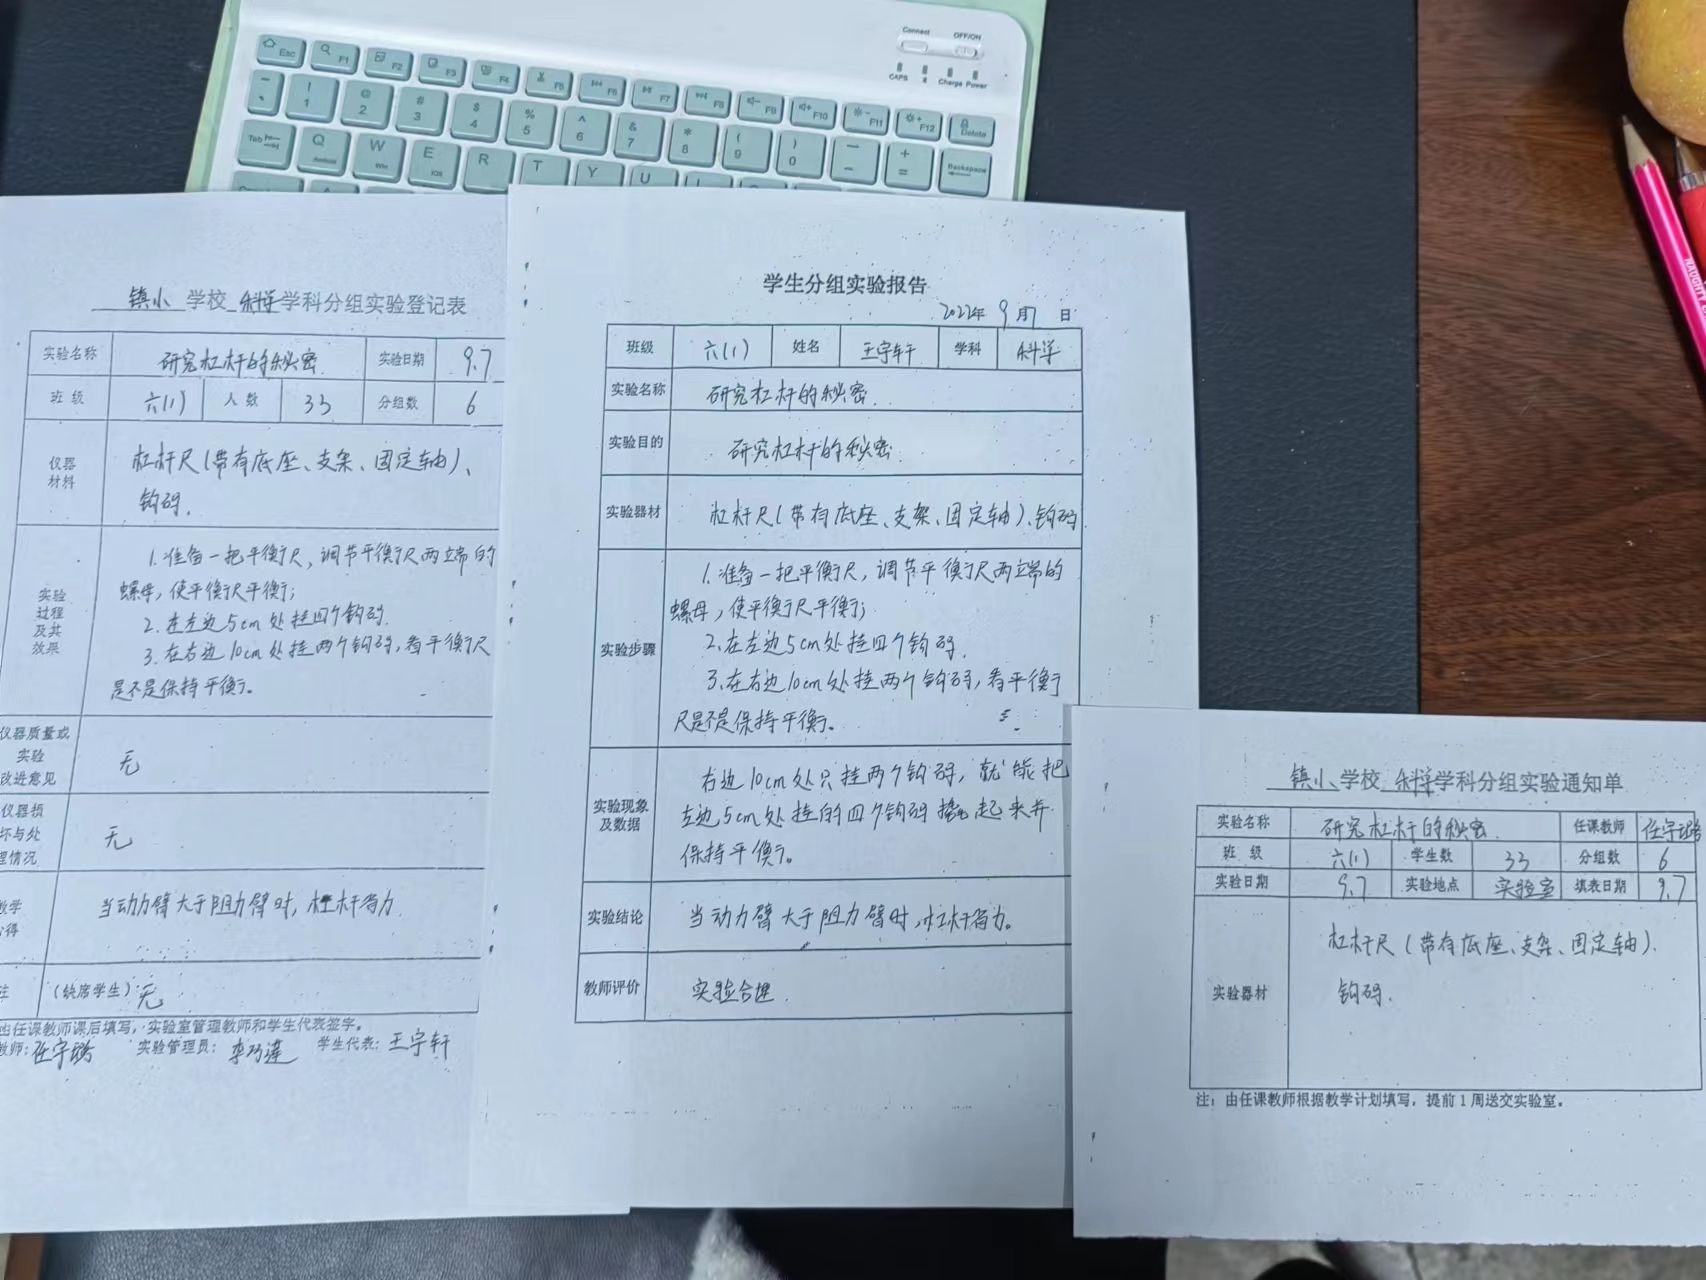 Connect OFF/ON
CAPS Charge Power
Esc F1 F2 F3 F4 F5 F6 F7 F8 F9 F10 F11 F12 Delete
! 1 @ 2 # 3 $ 4 % 5 ^ 6 & 7 * 8 ( 9 ) 0 — - + = Backspace
Tab Q W E R T Y U
镇小 学校 科学 学科分组实验登记表
实验名称 研究杠杆的秘密. 实验日期 9.7
班 级 六(1) 人 数 33 分组数 6
仪器
材料
杠杆尺(带有底座、支架、固定轴)、
钩码.
实验
过程
及其
效果
1.准备一把平衡尺,调节平衡尺两端的
螺母,使平衡尺平衡;
2.在左边5cm处挂四个钩码.
3.在右边10cm处挂两个钩码,看平衡尺
是不是保持平衡。
仪器质量或
实验
改进意见
无
仪器损
坏与处
理情况
无
教学
心得
当动力臂大于阻力臂时,杠杆省力.
注 (缺席学生):无
由任课教师课后填写,实验室管理教师和学生代表签字。
教师: 实验管理员: 学生代表:王宇轩
学生分组实验报告
2022年 9月7 日
班级 六(1) 姓名 王宇轩 学科 科学
实验名称 研究杠杆的秘密.
实验目的 研究杠杆的秘密.
实验器材 杠杆尺(带有底座、支架、固定轴)、钩码
实验步骤
1.准备一把平衡尺,调节平衡尺两端的
螺母,使平衡尺平衡;
2.在左边5cm处挂四个钩码.
3.在右边10cm处挂两个钩码,看平衡
尺是不是保持平衡。
实验现象
及数据
右边10cm处只挂两个钩码,就能把
左边5cm处挂的四个钩码撬起来并
保持平衡。
实验结论 当动力臂大于阻力臂时,杠杆省力。
教师评价 实验合理.
镇小 学校 科学 学科分组实验通知单
实验名称 研究杠杆的秘密. 任课教师
班 级 六(1) 学生数 33 分组数 6
实验日期 9.7 实验地点 实验室 填表日期 9.7
实验器材
杠杆尺(带有底座、支架、固定轴).
钩码.
注:由任课教师根据教学计划填写,提前1周送交实验室。
NAUGHTY